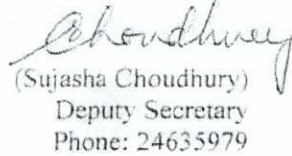 Choudhury
(Sujasha Choudhury)
Deputy Secretary
Phone: 24635979